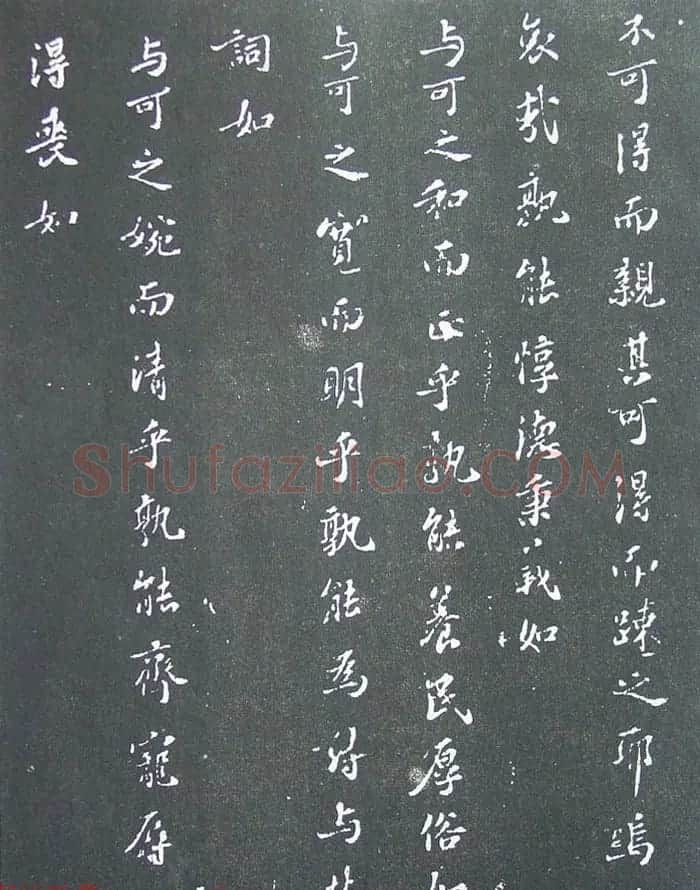 不可得而親其可得而踈之耶嗚
哀哉孰能惇德秉義如
与可之和而正乎孰能養民厚俗如
与可之寬而明乎孰能為詩与
詞如
与可之婉而清乎孰能齊寵辱
得喪如
Shufaziliao.COM